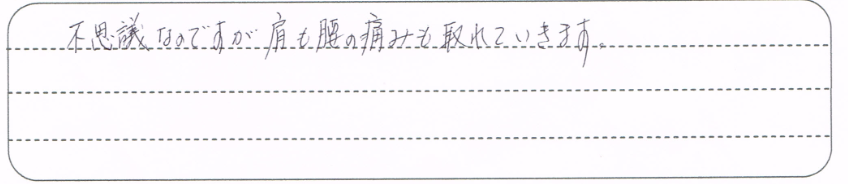 不思議なのですが肩も腰の痛みも取れていきます。